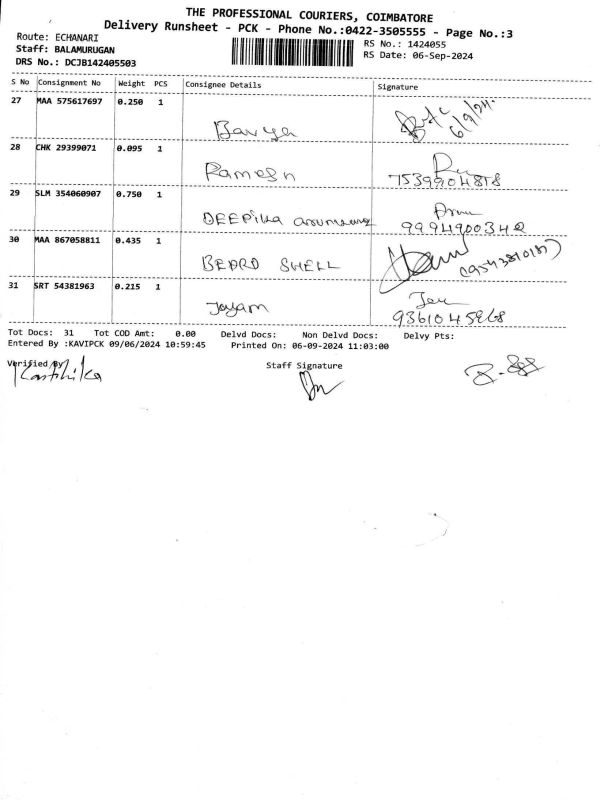 THE PROFESSIONAL COURIERS, COIMBATORE
Delivery Runsheet - PCK - Phone No.:0422-3505555 - Page No.:3
Route: ECHANARI
RS No.: 1424055
Staff: BALAMURUGAN
RS Date: 06-Sep-2024
DRS No.: DCJB142405503
S No Consignment No Weight PCS Consignee Details Signature
27 MAA 575617697 0.250 1 Bavya 6/9/24.
28 CHK 29399071 0.095 1 Ramesh
7539904878
29 SLM 354060907 0.750 1 DEEPIKA
9994900342
30 MAA 867058811 0.435 1 BEARD SHELL
31 SRT 54381963 0.215 1 Jayam
Tot Docs: 31 Tot COD Amt: 0.00 Delvd Docs: Non Delvd Docs: Delvy Pts:
Entered By :KAVIPCK 09/06/2024 10:59:45 Printed On: 06-09-2024 11:03:00
Verified By Staff Signature
Karthika